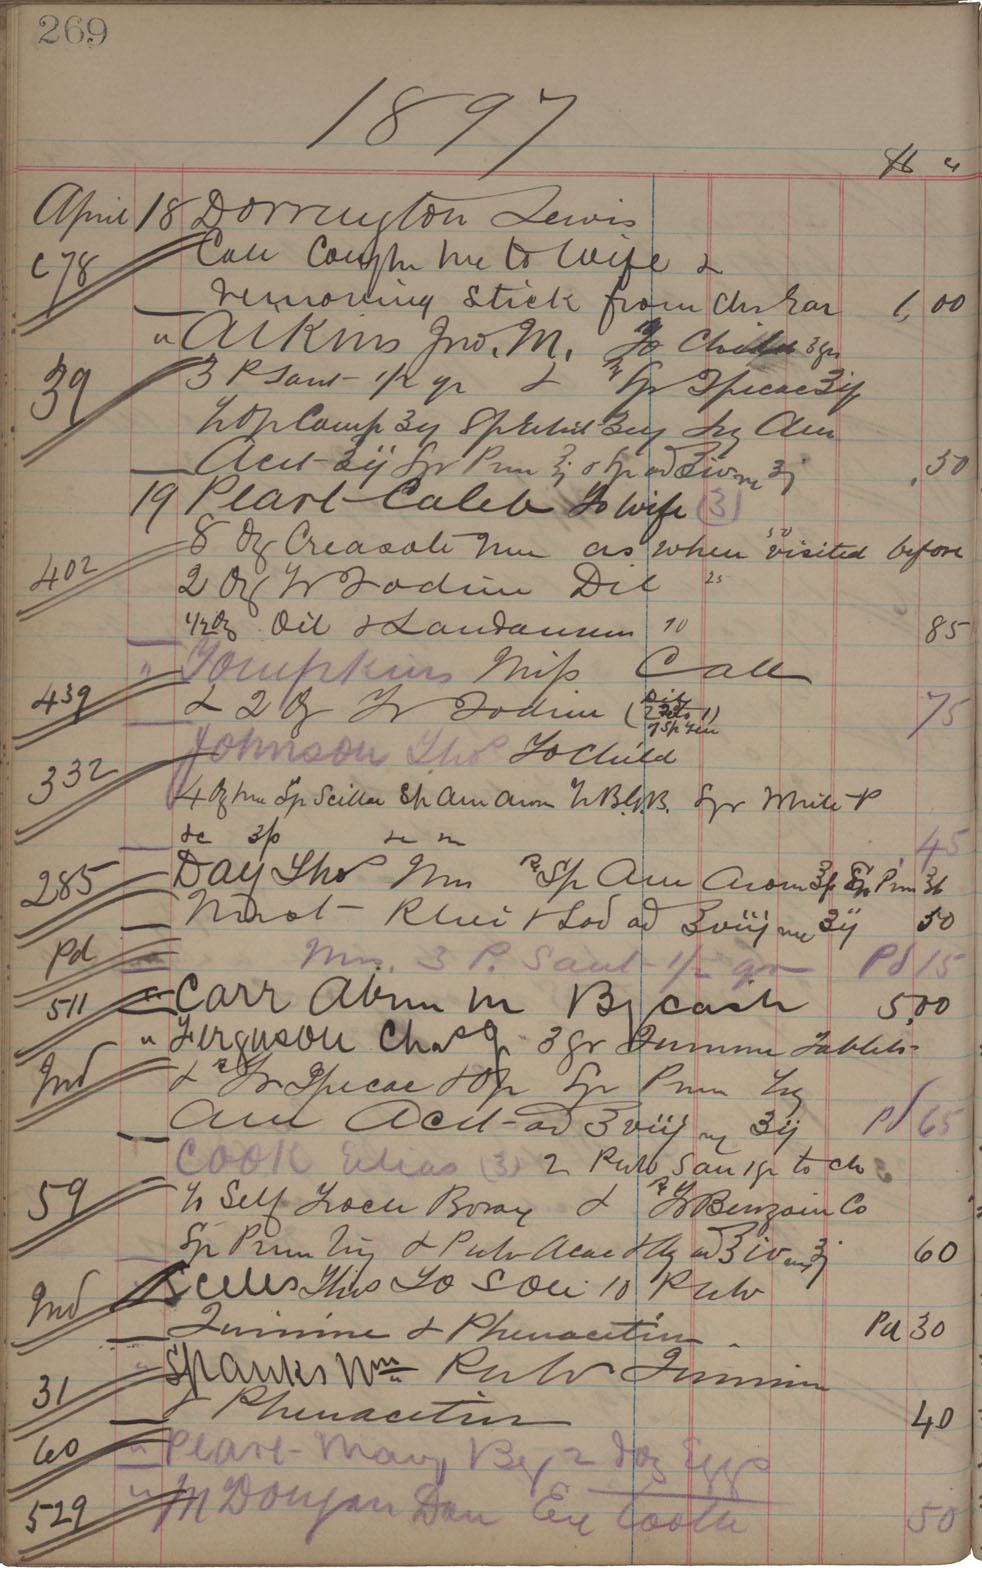 269
1897
$ c
April 18 Dorrington Lewis
C78 Call Cough me to Wife &
removing stick from chs Ear 1,00
" Atkins Jno. M. To Child 3 grs
39 3 P Sant 1/2 gr & Syr Ipecac ʒij
Tr Op Camp ʒij Sp Ethid ʒij Liq Am
Acet ʒij Syr Prun ℥j ad ℥iv ʒj .50
19 Pearl Caleb To Wife (3)
402 8 Oz Creasote Mm as when visited before 50
2 Oz Tr Iodine Dil 25
1/2 Oz Oil & Laudanum 10 85
439 " Tompkins Miss Call
& 2 Oz Tr Iodine (Dil 75
332 Johnson Thos To Child
4 Oz Syr Scillae Sp Am Arom Tr B.G.B. Syr White P
45
285 Day Thos Mm Sp Am Arom Syr Prun
Rhei & Sod ad ℥viij ʒij 50
Pd Mrs. 3 P. Sant 1/2 gr Pd 15
511 " Carr Abrm M By cash 5,00
" Ferguson Chas G. 3 gr Quinine Tablets
Ind & Tr Ipecac & Op Syr Prun Liq
Am Acet ad ℥viij ʒij Pd 65
Cook Elias (3) 2 Pulv San 1 gr to ch
59 To Self Troch Borax & Tr Benzoin Co
Syr Prun Virg & Pulv Acac & Aq ad ℥iv ʒj 60
Ind Thos To Son 10 Pulv
Quinine & Phenacetin Pd 30
31 " Spanks Wm Pulv Quinine
& Phenacetin 40
60 " Pearl Mary By 2 doz Eggs
529 " McDougan Dan Ex tooth 50